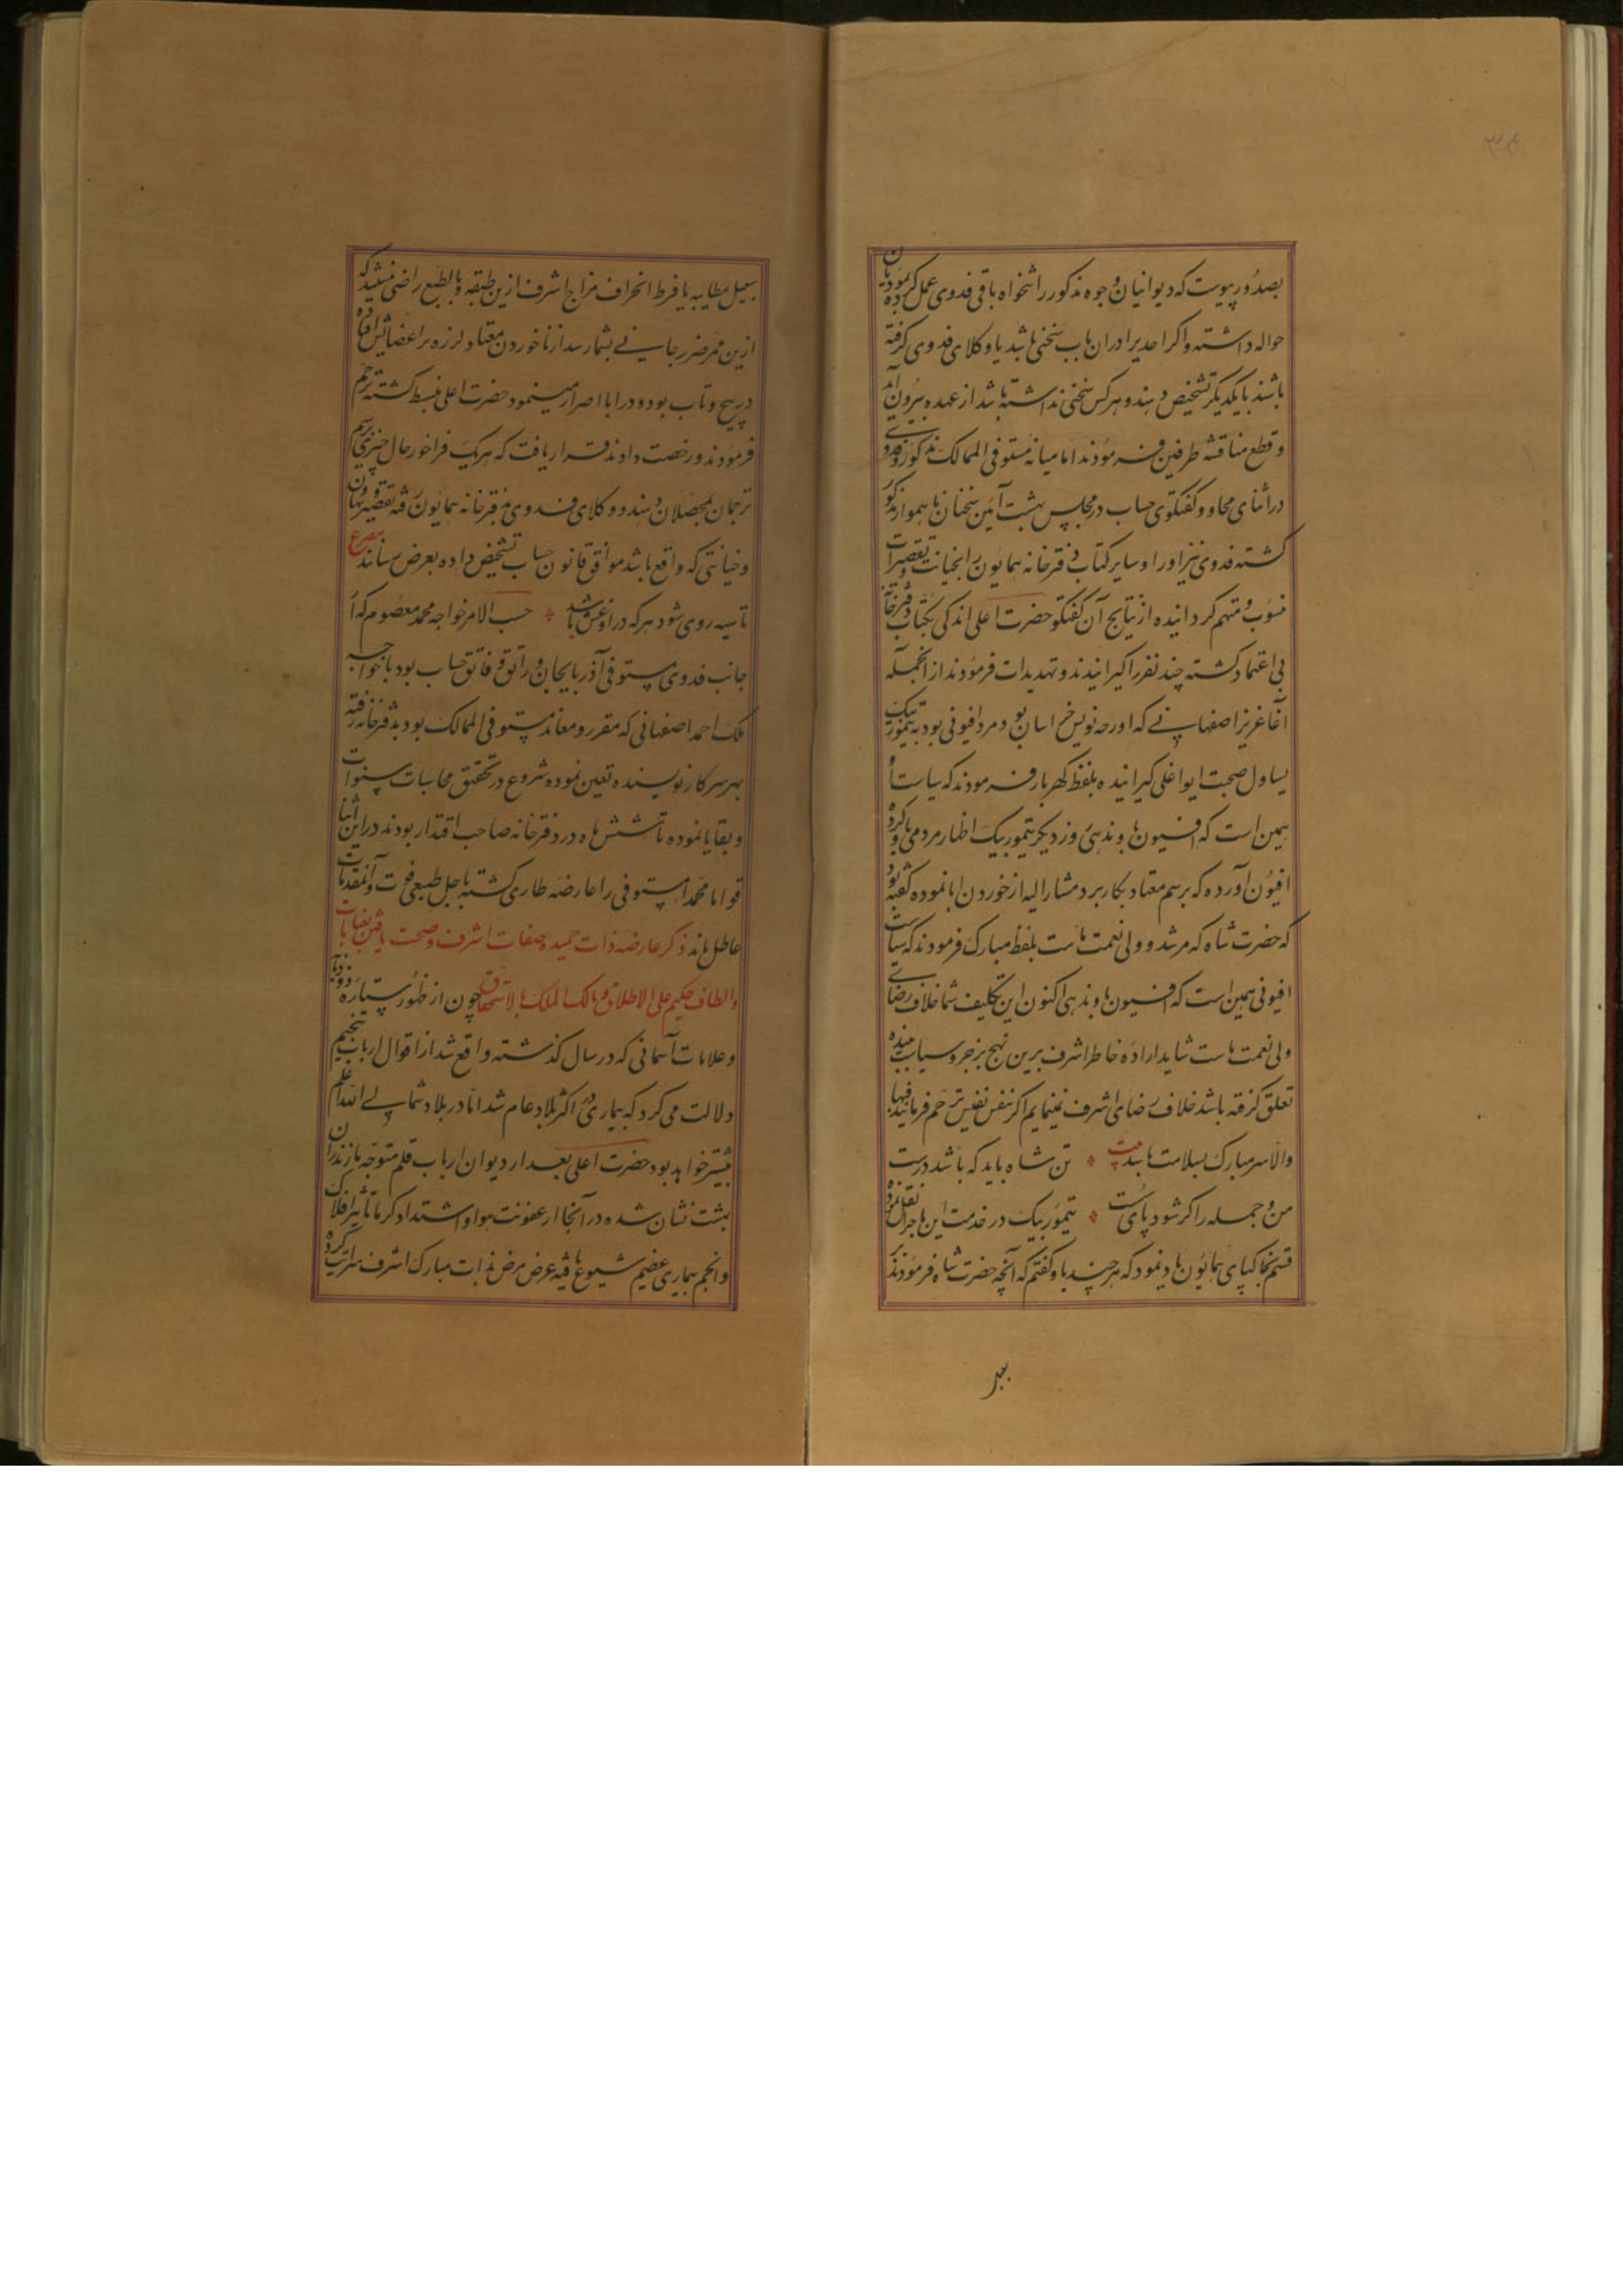 بصدور پیوست که دیوانیان وجوه مذکور را تنخواه باقی فدوی عمل کرده بمودیان
حواله داشته و اگر احدیرا در ان باب سخنی باشد یا وکلای فدوی گرفته
باشند با یکدیگر تشخیص دهند و هر کس سخنی نداشته باشد از عهده بیرون آید
و قطع مناقشه طرفین فرمودند اما میانه مستوفی الممالک مذکور و فدوی
در اثنای محاوره گفتگوی حساب در مجلس بهشت آئین سخنان ناهموار مذکور
گشته فدوی نیز اورا و سایر کتاب دفترخانه همایون را بخیانت و تقصیرات
منسوب و متهم گردانیده از نتایج آن گفتگو حضرت اعلی اندکی بکتاب دفترخانه
بی اعتماد گشته چند نفر را گیرانیدند و تهدیدات فرمودند از آنجمله
آقا عزیز اصفهانی که اورجه نویس خراسان بود و مرد افیونی بود به تیمور بیک
یساول صحبت ایواغلی گیرانیده بلفظ گهربار فرمودند که سیاست او
همین است که افیون باو ندهی روز دیگر تیمور بیک اظهار مردمی باو کرده
افیون آورده که برسم معتاد بکار برد مشار الیه از خوردن ابا نموده گفته بود
که حضرت شاه که مرشد و ولی نعمت ماست بلفظ مبارک فرمودند که سیاست
افیونی همین است که افیون باو ندهی اکنون این تکلیف شما خلاف رضای
ولی نعمت ماست شاید اراده خاطر اشرف برین نهج بزجر و سیاست بنده
تعلق گرفته باشد خلاف رضای اشرف نمینمایم اگر بنفس نفیس ترحم فرمایند فبها
والا سر مبارک بسلامت باشد بیت تن شاه باید که باشد درست
من و جمله را گر شود پای سست تیمور بیک در خدمت اشرف این ماجرا نقل نموده
قسم بخاکپای همایون یاد نمود که هر چند باو گفتم که آنچه حضرت شاه فرمودند بر
بر
سبیل مطایبه یا فرط انحراف مزاج اشرف ازین طبقه بود بالطبع راضی نمیشد که
ازین ممر ضرر جانی بشما رسد از ناخوردن معتاد لرزه بر اعضایش افتاده
در پیچ و تاب بود و در ابا اصرار مینمود حضرت اعلی منبسط گشته ترحم
فرمودند و رخصت دادند قرار یافت که هر یک فراخور حال چیزی برسم
ترجمان بمحصلان دهند و وکلای فدوی بدفترخانه همایون رفته تقصیر و تهاون
و خیانتی که واقع باشد موافق قانون حساب تشخیص داده بعرض رسانند مصرع
تا سیه روی شود هر که در او غش باشد حسب الامر خواجه محمد معصوم که از
جانب فدوی مستوفی آذربایجان و راتق و فاتق حساب بود با خواجه
ملک احمد اصفهانی که مقرر و معاند مستوفی الممالک بود بدفترخانه رفته
بهر سر کار نویسنده تعین نموده شروع در تحقیق محاسبات سنوات
و بقایا نموده تا شش ماه در دفترخانه صاحب اقتدار بودند در این اثنا
قواما محمدا مستوفی را عارضه طاری گشته باجل طبیعی فوت و آنمقدمات
عاطل ماند ذکر عارضه ذات حمیده صفات اشرف و صحت یافتن بعنایات
و الطاف حکیم علی الاطلاق و مالک الملک بالاستحقاق چون از ظهور ستاره ذوذوابه
و علامات آسمانی که در سال گذشته واقع شد از اقوال ارباب تنجیم
دلالت می کرد که بیماری در اکثر بلاد عام شد اما در بلاد شمالی الله اعلم
بیشتر خواهد بود حضرت اعلی بعد از دیوان ارباب قلم متوجه مازندران
بهشت نشان شده در آنجا از عفونت هوا و اشتداد گرما تاثیر افلاک
و انجم بیماری عظیم شیوع یافته عرض مرض بذات مبارک اشرف سرایت کرده